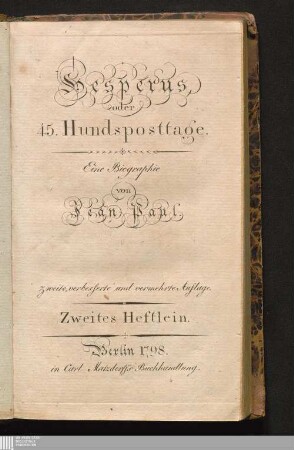 Hesperus,
oder
45. Hundsposttage.
Eine Biographie
von
Jean Paul.
Zweite, verbesserte und vermehrte Auflage.
Zweites Heftlein.
Berlin 1798.
in Carl Matzdorffs Buchhandlung.